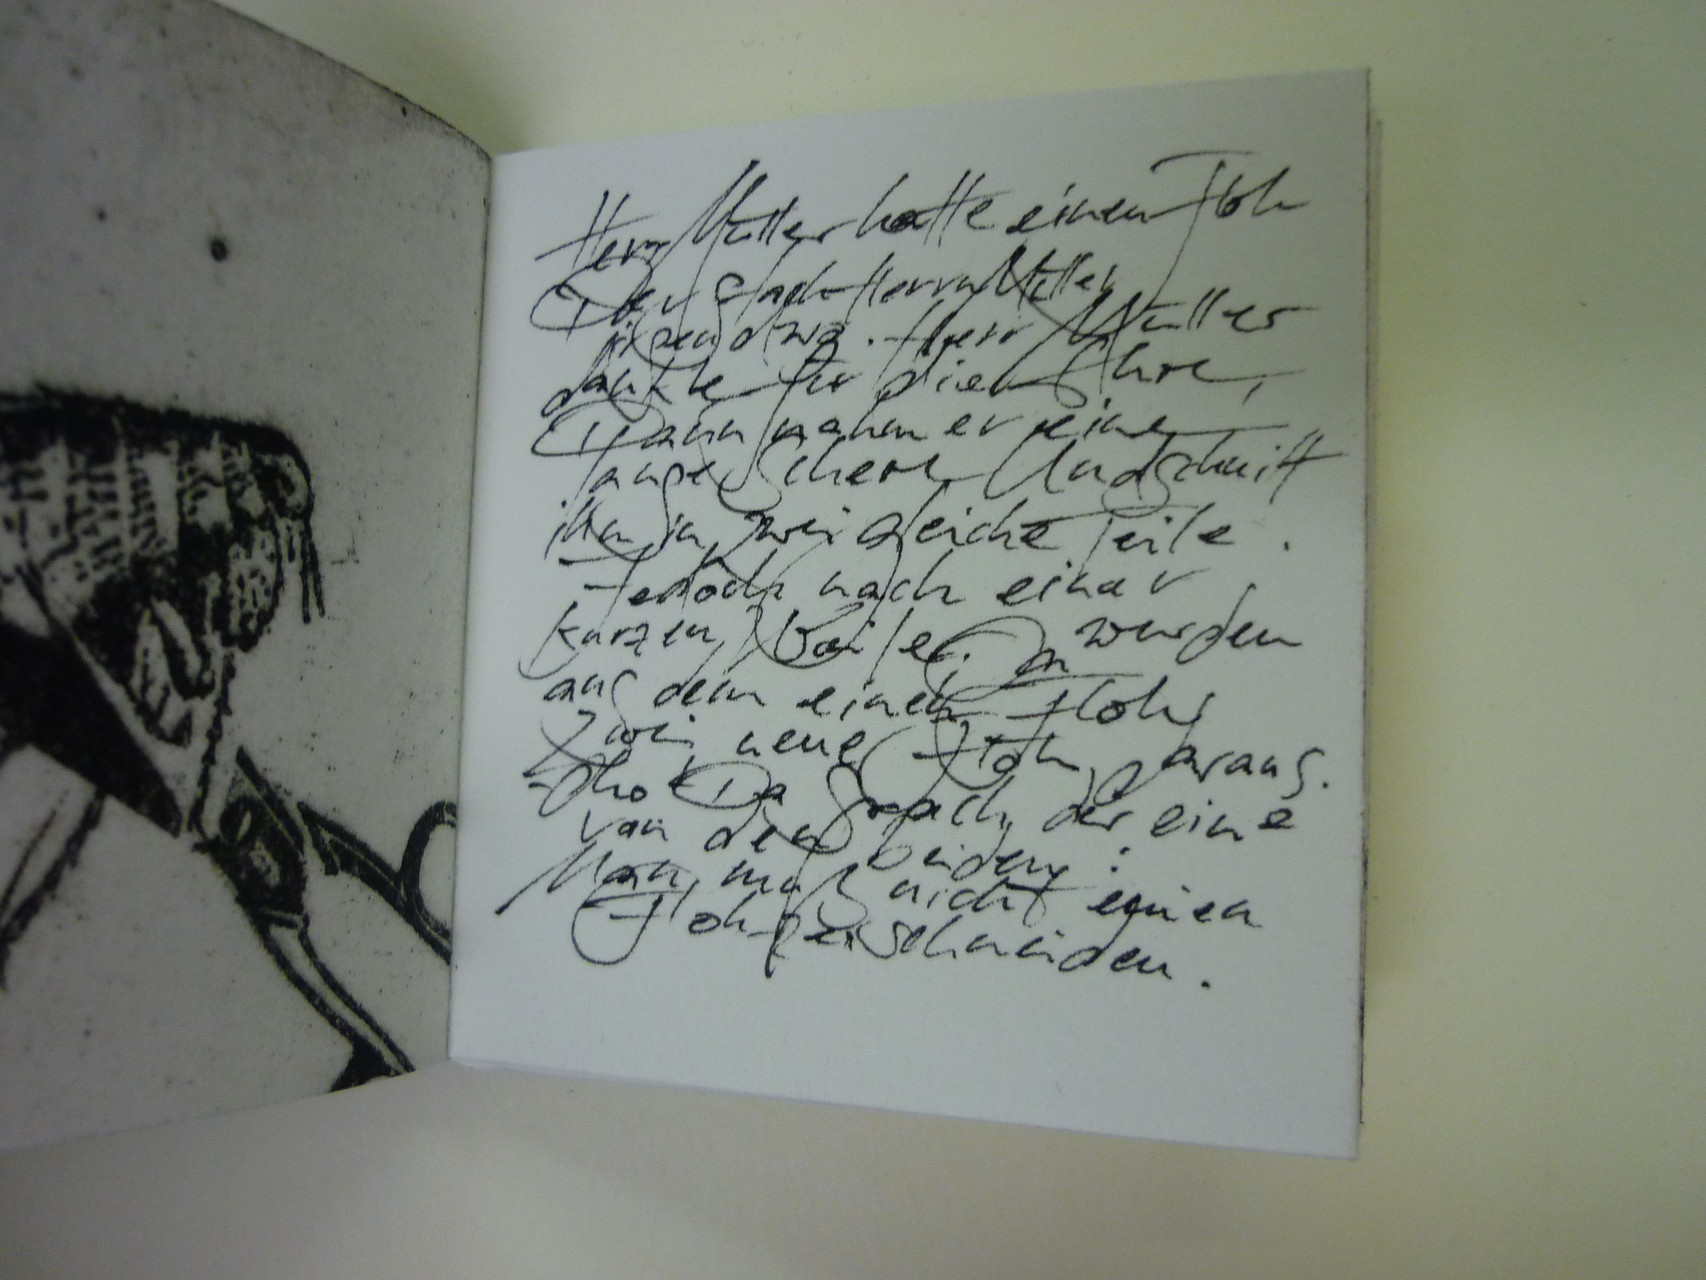 Herr Müller hatte einen Floh
Der stach Herrn Müller
irgendwo. Herr Müller
dankte für die Ehre,
Dann nahm er eine
lange Schere Und schnitt
ihn in zwei gleiche Teile.
Jedoch nach einer
kurzen Weile. Da wurden
aus dem einen Floh
Zwei neue Flöh daraus.
Oho Da sprach der eine
von den beiden:
Man muß nicht einen
Floh zerschneiden.